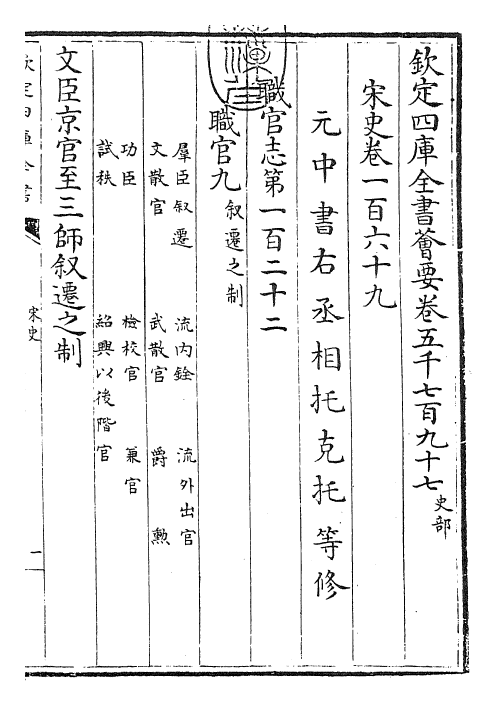 欽定四庫全書薈要卷五千七百九十七史部
宋史卷一百六十九
元中書右丞相托克托等修
職官志第一百二十二
職官九叙遷之制
羣臣叙遷 流內銓 流外出官
文散官 武散官 爵 勲
功臣 檢校官 兼官
試秩 紹興以後階官
文臣京官至三師叙遷之制
欽定四庫全書 宋史 一